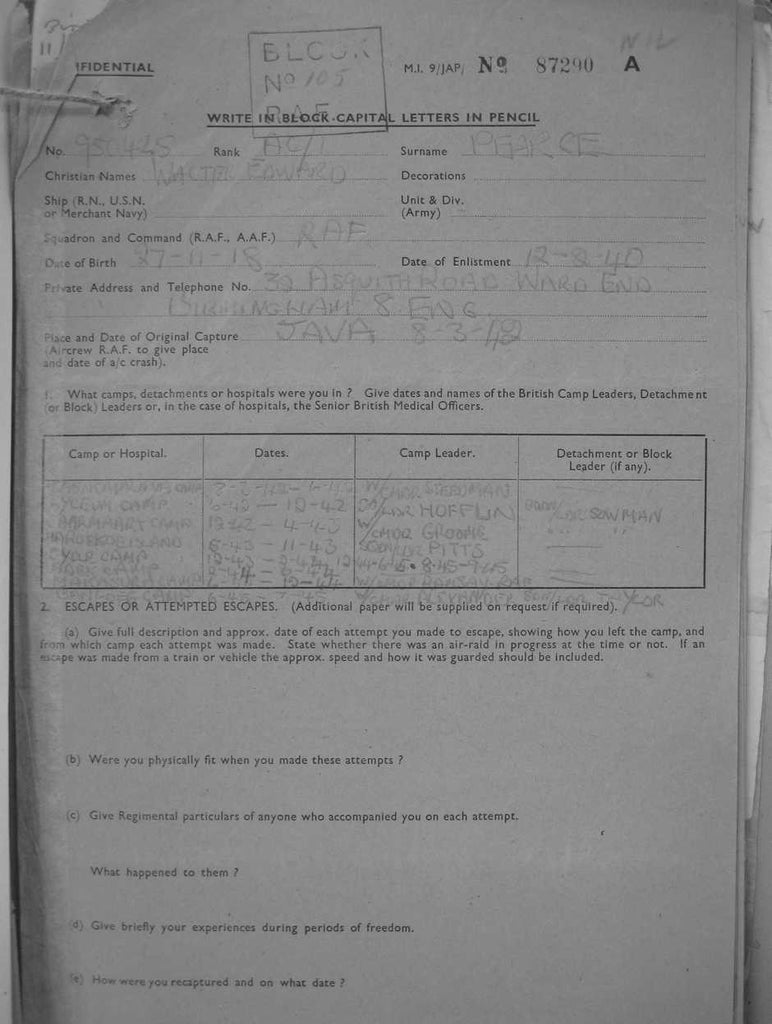 11
IFIDENTIAL
BLOCK
No 105
RAF
M.I. 9/JAP/ No 87290 A
NIL
WRITE IN BLOCK CAPITAL LETTERS IN PENCIL
No. Rank AC/1 Surname PEARCE
Christian Names WALTER EDWARD Decorations
Ship (R.N., U.S.N. or Merchant Navy) Unit & Div. (Army)
Squadron and Command (R.A.F., A.A.F.) RAF
Date of Birth 27-11-18 Date of Enlistment 12-8-40
Private Address and Telephone No. 32 ASQUITH ROAD WARD END
BIRMINGHAM 8. ENG
Place and Date of Original Capture JAVA 8-3-42
(Aircrew R.A.F. to give place
and date of a/c crash).
1. What camps, detachments or hospitals were you in ? Give dates and names of the British Camp Leaders, Detachment
(or Block) Leaders or, in the case of hospitals, the Senior British Medical Officers.
Camp or Hospital. Dates. Camp Leader. Detachment or Block Leader (if any).
CAMP W/CMDR STEEDMAN
CAMP 6-42 — 12-42 HOFFLIN BOWMAN
CAMP 12-42 — 4-43 W/CMDR GROOME
ISLAND 5-43 — 11-43 PITTS
CAMP
CAMP 12-44
CAMP
2. ESCAPES OR ATTEMPTED ESCAPES. (Additional paper will be supplied on request if required).
(a) Give full description and approx. date of each attempt you made to escape, showing how you left the camp, and
from which camp each attempt was made. State whether there was an air-raid in progress at the time or not. If an
escape was made from a train or vehicle the approx. speed and how it was guarded should be included.
(b) Were you physically fit when you made these attempts ?
(c) Give Regimental particulars of anyone who accompanied you on each attempt.
What happened to them ?
(d) Give briefly your experiences during periods of freedom.
(e) How were you recaptured and on what date ?